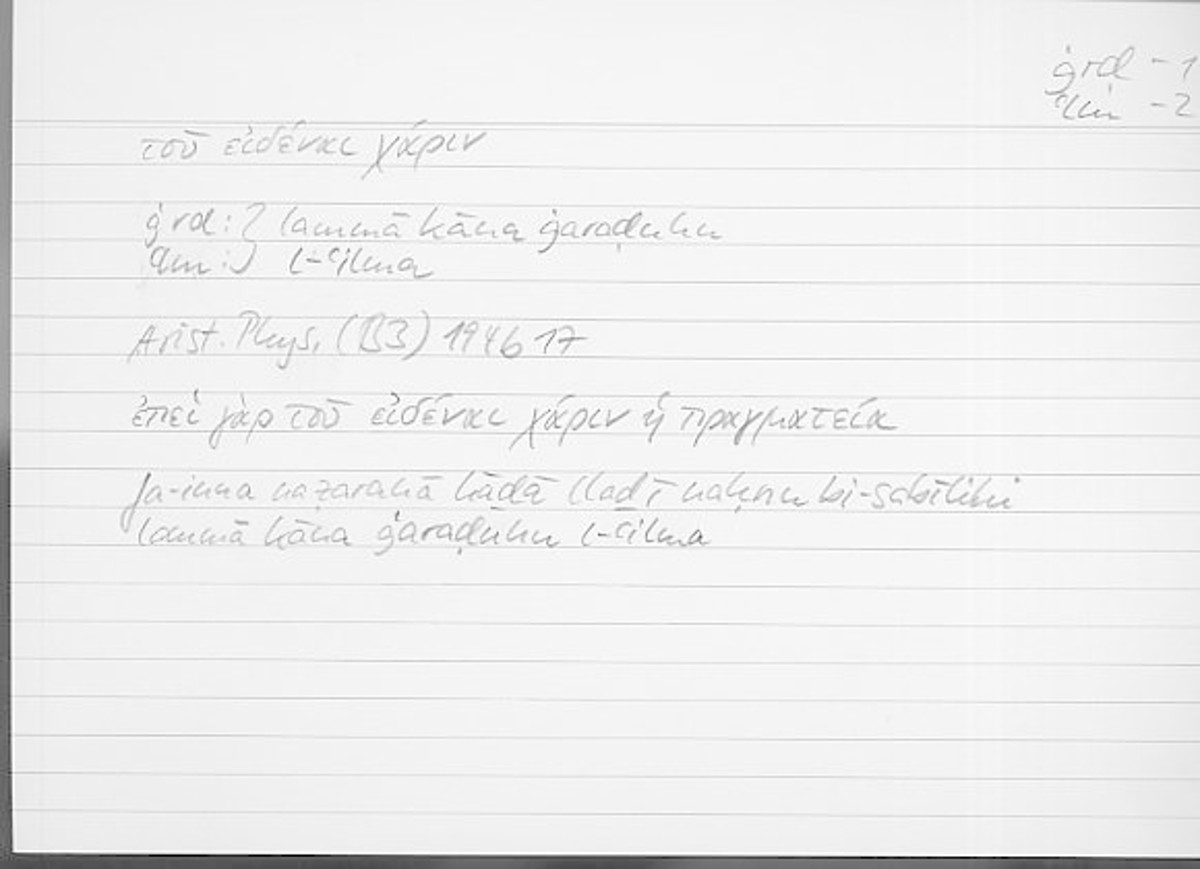 ġrḍ - 1
ʿlm - 2
τοῦ εἰδέναι χάριν
ġrḍ: } lammā kāna ġaraḍuhu
ʿlm: } l-ʿilma
Arist. Phys. (B3) 194b17
ἐπεὶ γὰρ τοῦ εἰδέναι χάριν ἡ πραγματεία
fa-inna naẓaranā hāḏā llaḏī naḥnu bi-sabīlihi
lammā kāna ġaraḍuhu l-ʿilma